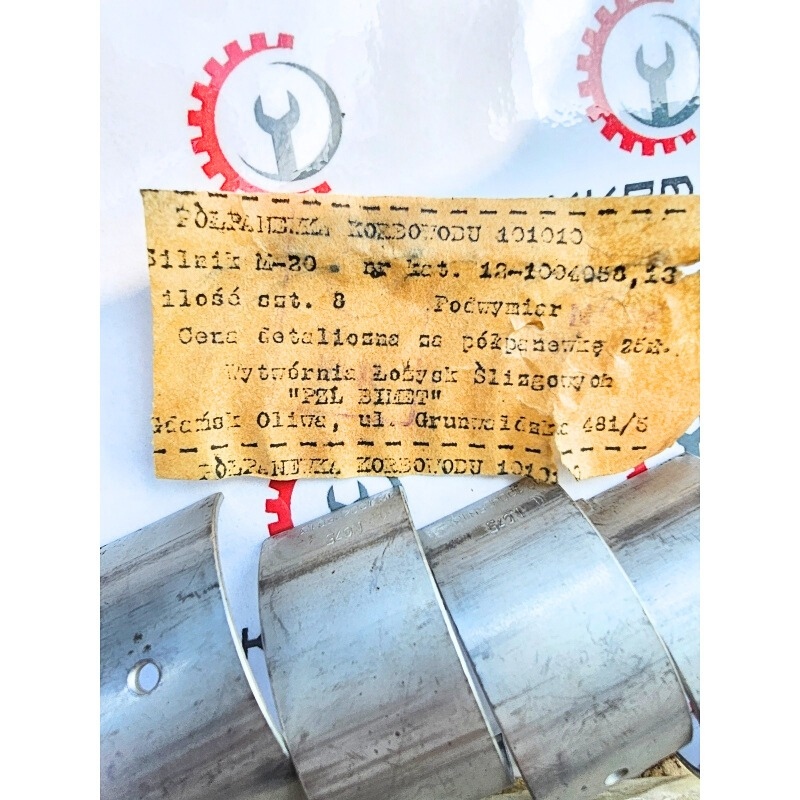 PÓŁPANEWKA KORBOWODU 101010
Silnik M-20 . nr kat. 12-1004058,13
ilość szt. 8 Podwymiar
Cena detaliczna za półpanewkę 25zł.
Wytwórnia Łożysk Ślizgowych
"PZL BIMET"
Gdańsk Oliwa, ul. Grunwaldzka 481/5
PÓŁPANEWKA KORBOWODU 101010